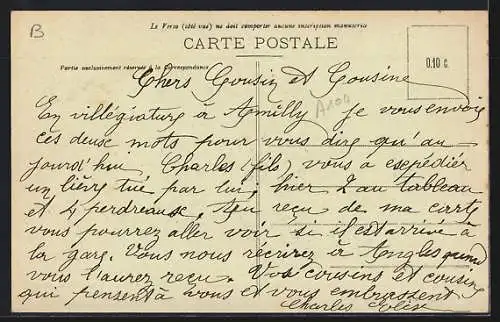 B
Le Verso (côté vue) ne doit comporter aucune inscription manuscrite
CARTE POSTALE
Partie exclusivement réservée à la Correspondance
0.10 c.
Chers Cousin et Cousine
En villégiature à Amilly je vous envoie
ces deux mots pour vous dire qu'au
jourd'hui Charles (fils) vous a expédier
un lièvre tué par lui, hier 2 au tableau
et 4 perdreaux. Au reçu de ma carte
vous pourrez aller voir si il est arrivé à
la gare. Vous nous recrirez à Angles quand
vous l'aurez reçu. Vos cousins et cousine
qui pensent à vous et vous embrassent
Charles